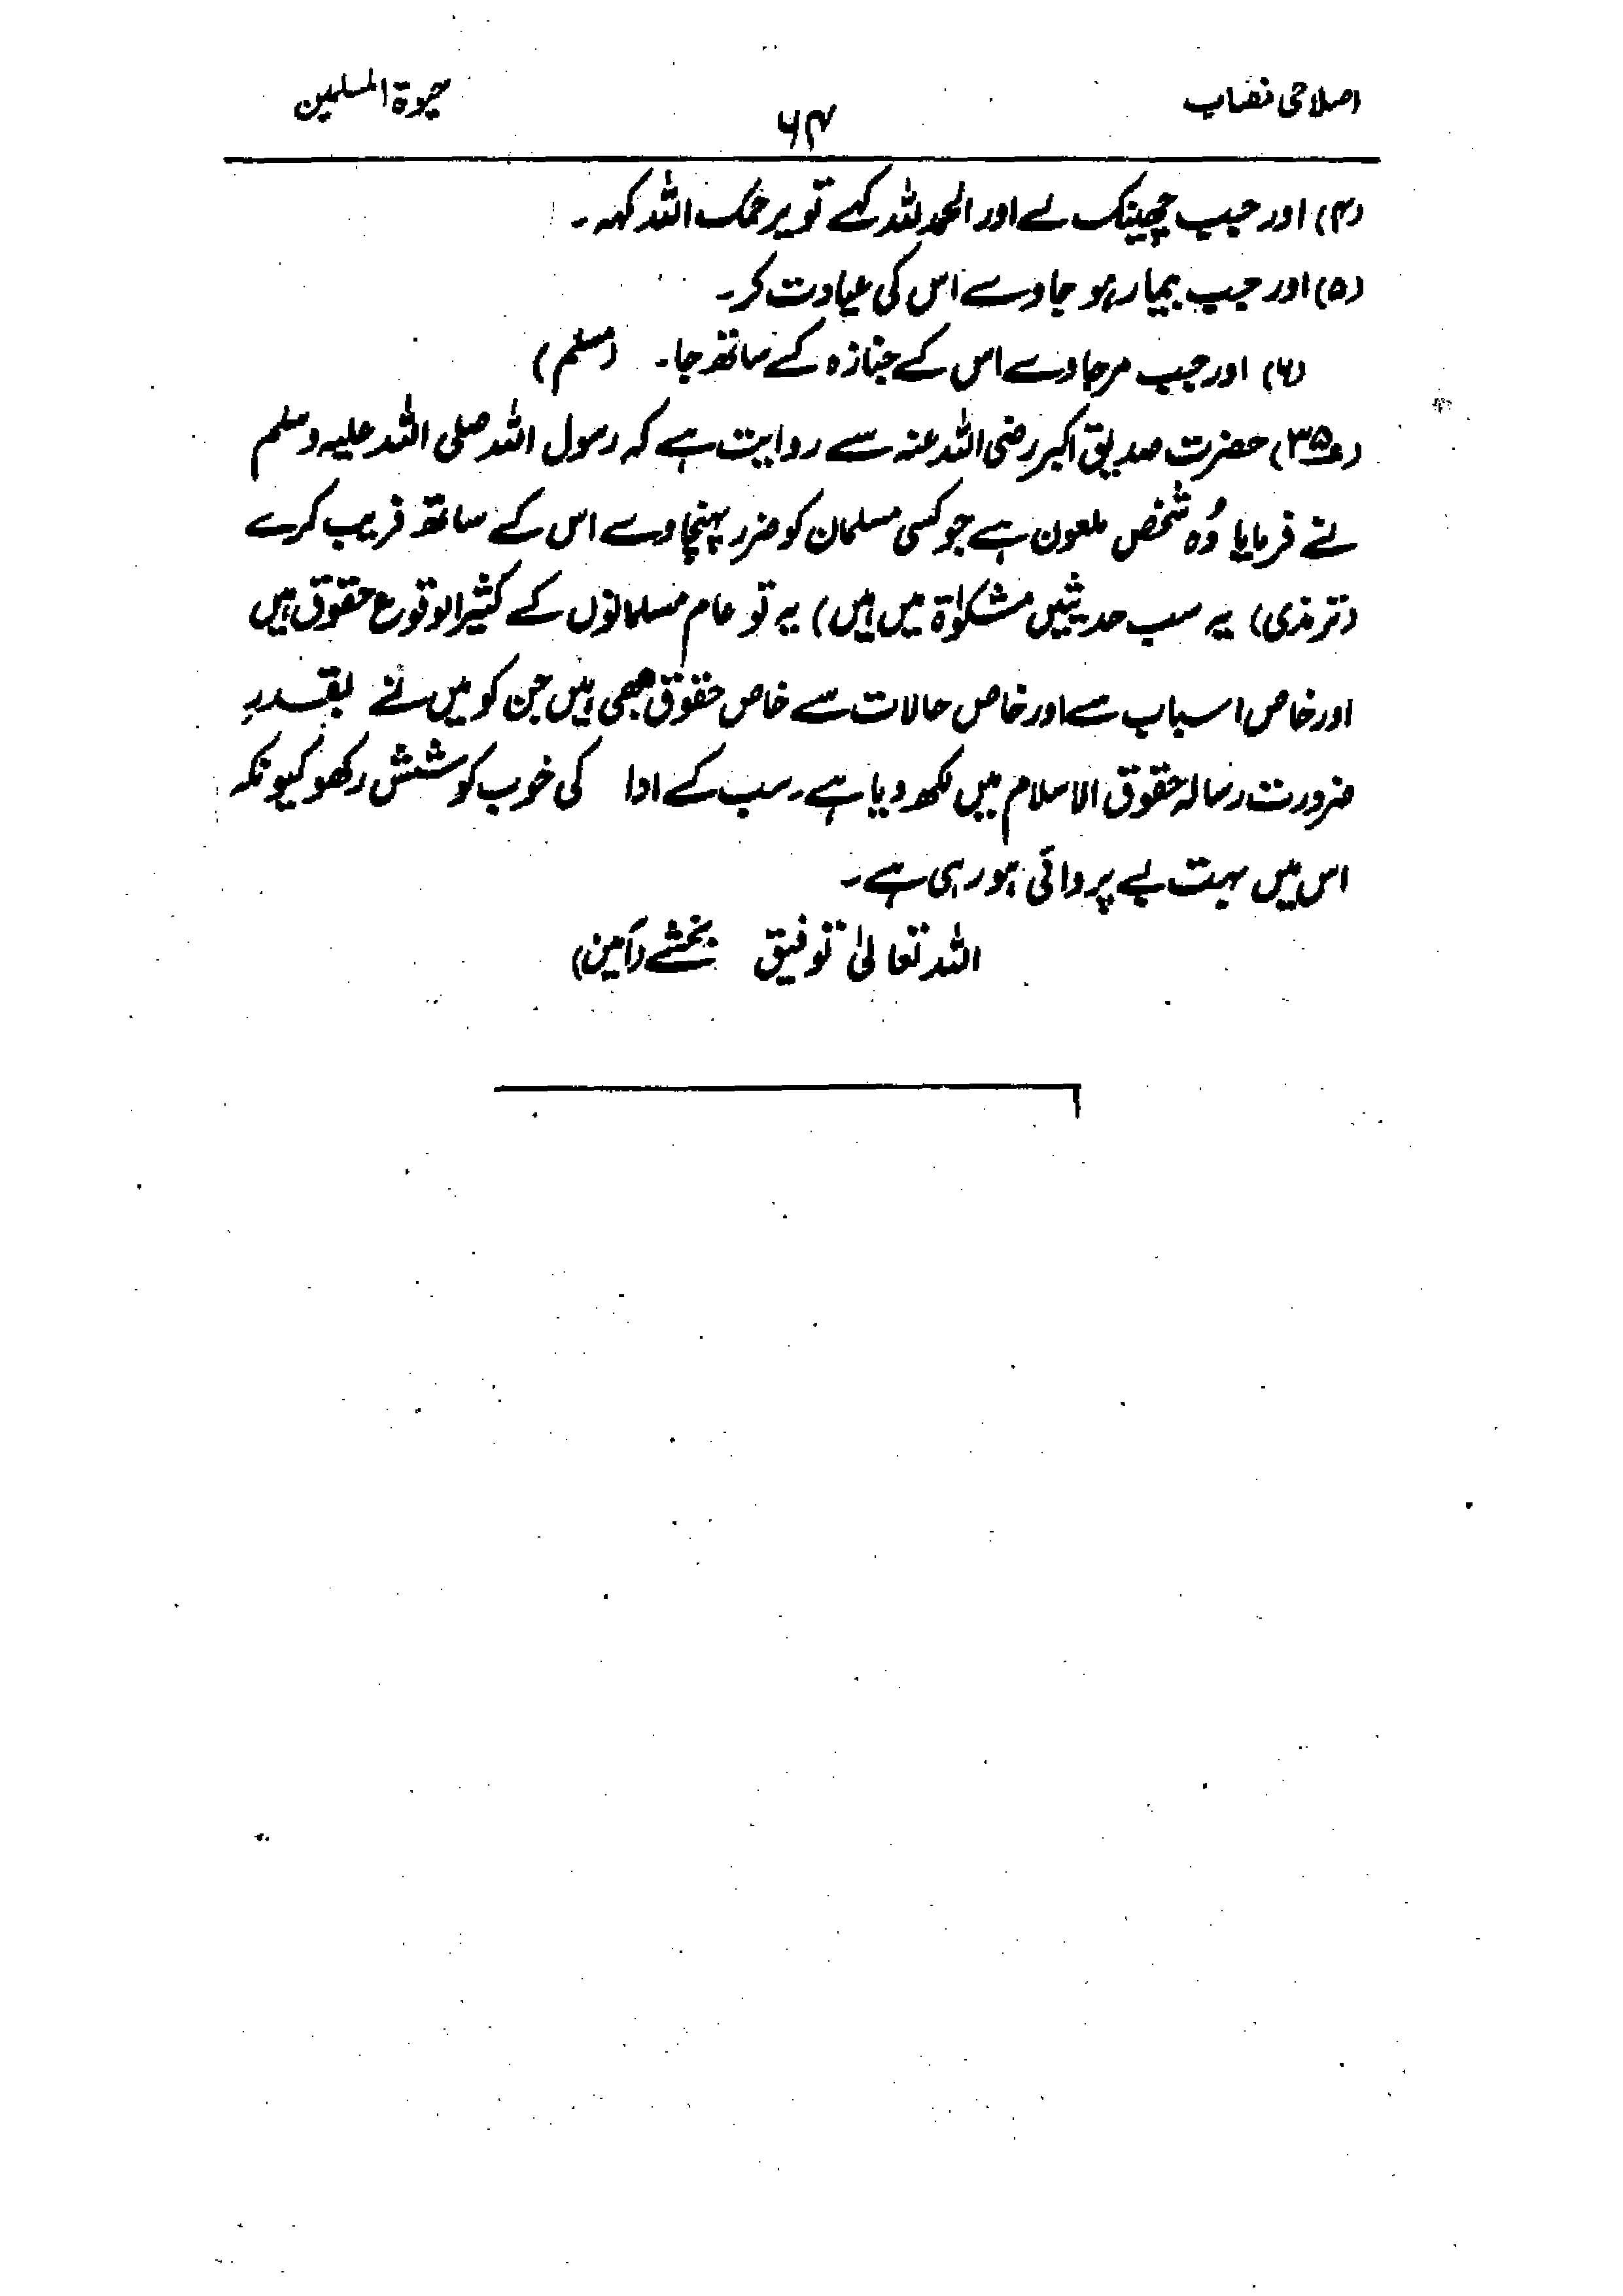 اصلاحی نصاب
۶۴
حیوة المسلمین
(۴) اور جب چھینک لے اور الحمد للہ کہے تو یرحمک اللہ کہہ۔
(۵) اور جب بیمار ہو جاوے اس کی عیادت کر۔
(۶) اور جب مر جاوے اس کے جنازہ کے ساتھ جا۔ (مسلم)
(ع۳۵) حضرت صدیق اکبر رضی اللہ عنہ سے روایت ہے کہ رسول اللہ صلی اللہ علیہ وسلم
نے فرمایا وُہ شخص ملعون ہے جو کسی مسلمان کو ضرر پہنچاوے اس کے ساتھ فریب کرے
(ترمذی) یہ سب حدیثیں مشکوٰۃ میں ہیں) یہ تو عام مسلمانوں کے کثیر الوقوع حقوق ہیں
اور خاص اسباب سے اور خاص حالات سے خاص حقوق بھی ہیں جن کو میں نے بقدرِ
ضرورت رسالہ حقوق الاسلام میں لکھ دیا ہے۔ سب کے ادا کی خوب کوشش رکھو کیونکہ
اس میں بہت بے پروائی ہو رہی ہے۔
اللہ تعالیٰ توفیق بخشے (آمین)